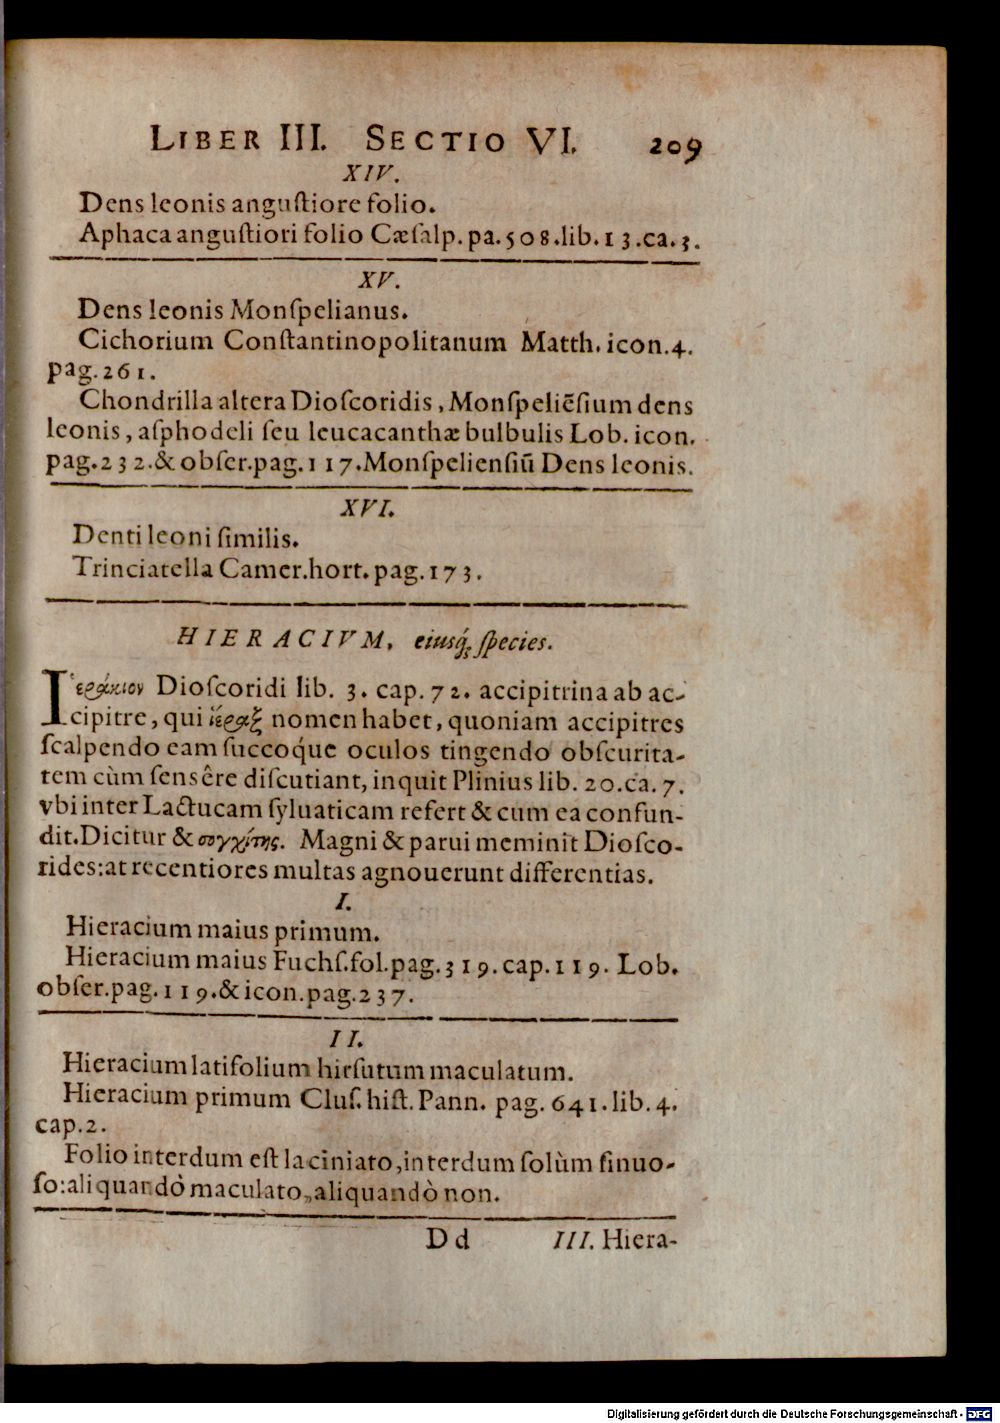 LIBER III. SECTIO VI. 209
XIV.
Dens leonis anguſtiore folio.
Aphaca anguſtiori folio Cæſalp. pa. 508. lib. 13. ca. 3.
XV.
Dens leonis Monſpelianus.
Cichorium Conſtantinopolitanum Matth. icon. 4.
pag. 261.
Chondrilla altera Dioſcoridis, Monſpeliēſium dens
leonis, aſphodeli ſeu leucacanthæ bulbulis Lob. icon.
pag. 232. & obſer. pag. 117. Monſpelienſiū Dens leonis.
XVI.
Denti leoni ſimilis.
Trinciatella Camer. hort. pag. 173.
HIERACIVM, eiusq́; ſpecies.
Ἱεράκιον Dioſcoridi lib. 3. cap. 72. accipitrina ab ac-
cipitre, qui ἱέραξ nomen habet, quoniam accipitres
ſcalpendo eam ſuccoq́ue oculos tingendo obſcurita-
tem cùm ſensêre diſcutiant, inquit Plinius lib. 20. ca. 7.
vbi inter Lactucam ſyluaticam refert & cum ea confun-
dit. Dicitur & συγχίτης. Magni & parui meminit Dioſco-
rides: at recentiores multas agnouerunt differentias.
I.
Hieracium maius primum.
Hieracium maius Fuchſ. fol. pag. 319. cap. 119. Lob.
obſer. pag. 119. & icon. pag. 237.
II.
Hieracium latifolium hirſutum maculatum.
Hieracium primum Cluſ. hiſt. Pann. pag. 641. lib. 4.
cap. 2.
Folio interdum eſt laciniato, interdum ſolùm ſinuo-
ſo: aliquandò maculato, aliquandò non.
Dd III. Hiera-
Digitalisierung gefördert durch die Deutsche Forschungsgemeinschaft - DFG